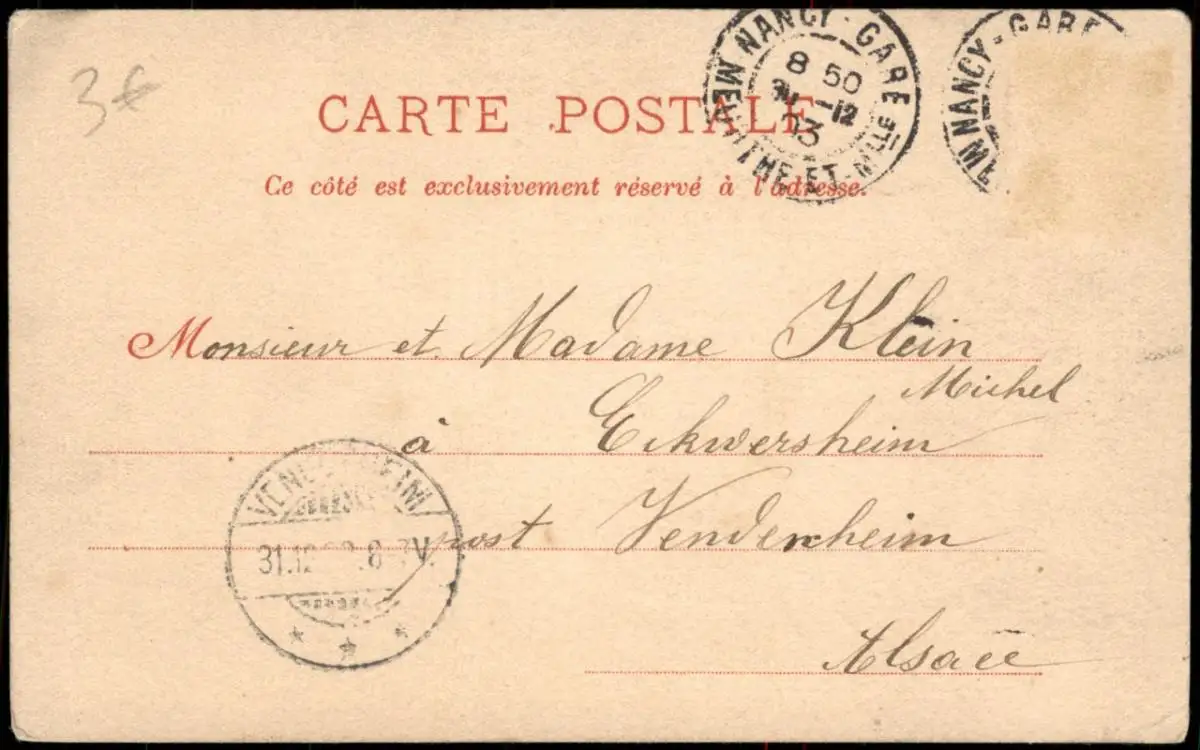 3€
NANCY-GARE
8 50
-12
03
MEURTHE-ET-Mlle
NANCY-GARE
CARTE POSTALE
Ce côté est exclusivement réservé à l'adresse.
Monsieur et Madame Klein
Michel
à Eckwersheim
post Vendenheim
Alsace
VENDENHEIM
31.12 8 V.